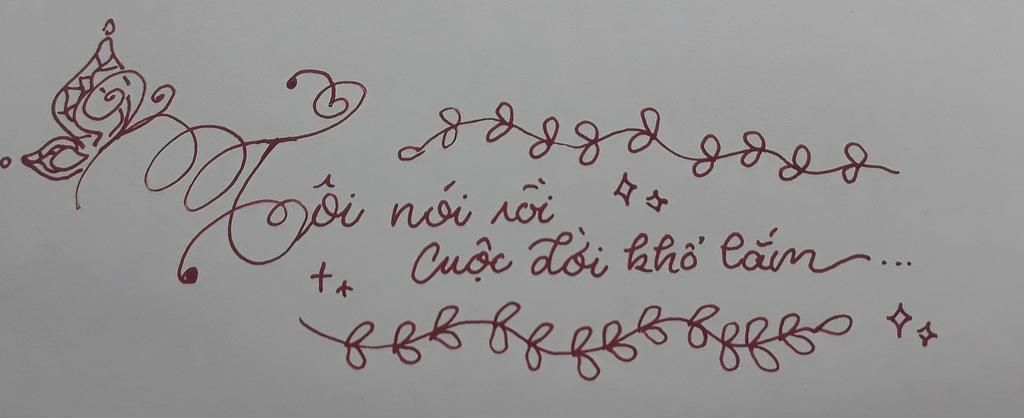 Tôi nói rồi
Cuộc đời khổ lắm...